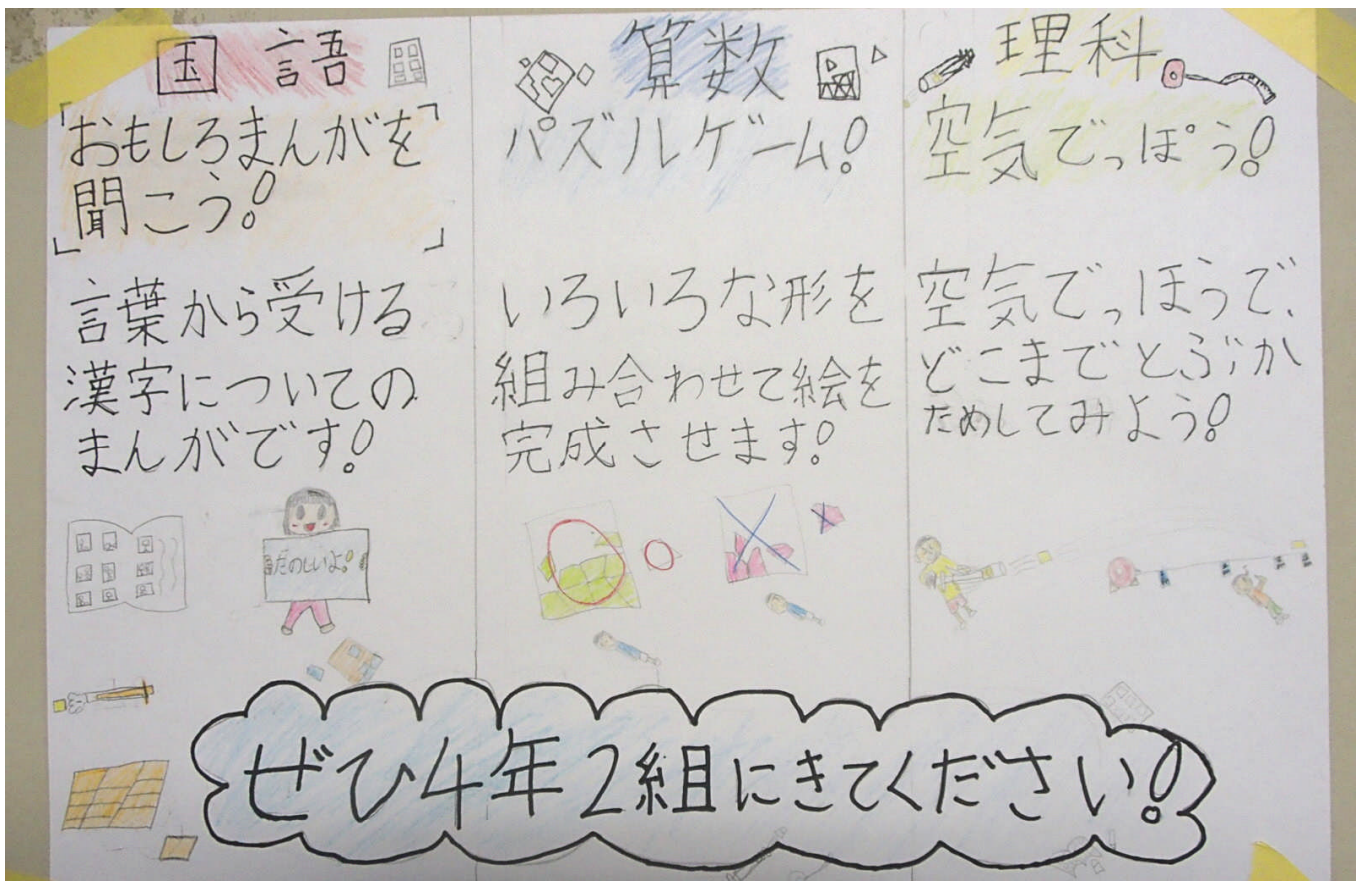 国語
「おもしろまんがを
聞こう!」
言葉から受ける
漢字についての
まんがです!
たのしいよ!
算数
パズルゲーム!
いろいろな形を
組み合わせて絵を
完成させます!
理科
空気でっぽう!
空気でっぽうで、
どこまでとぶか
ためしてみよう!
ぜひ4年2組にきてください!